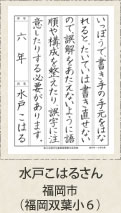 いっぽうで書き手の手元をはな
れるとたいていは書き直せない
ので誤解をあたえないように語
順や構成を整えたり誤字に注
意したりする必要があります
六年 水戸こはる
水戸こはるさん
福岡市
(福岡双葉小6)